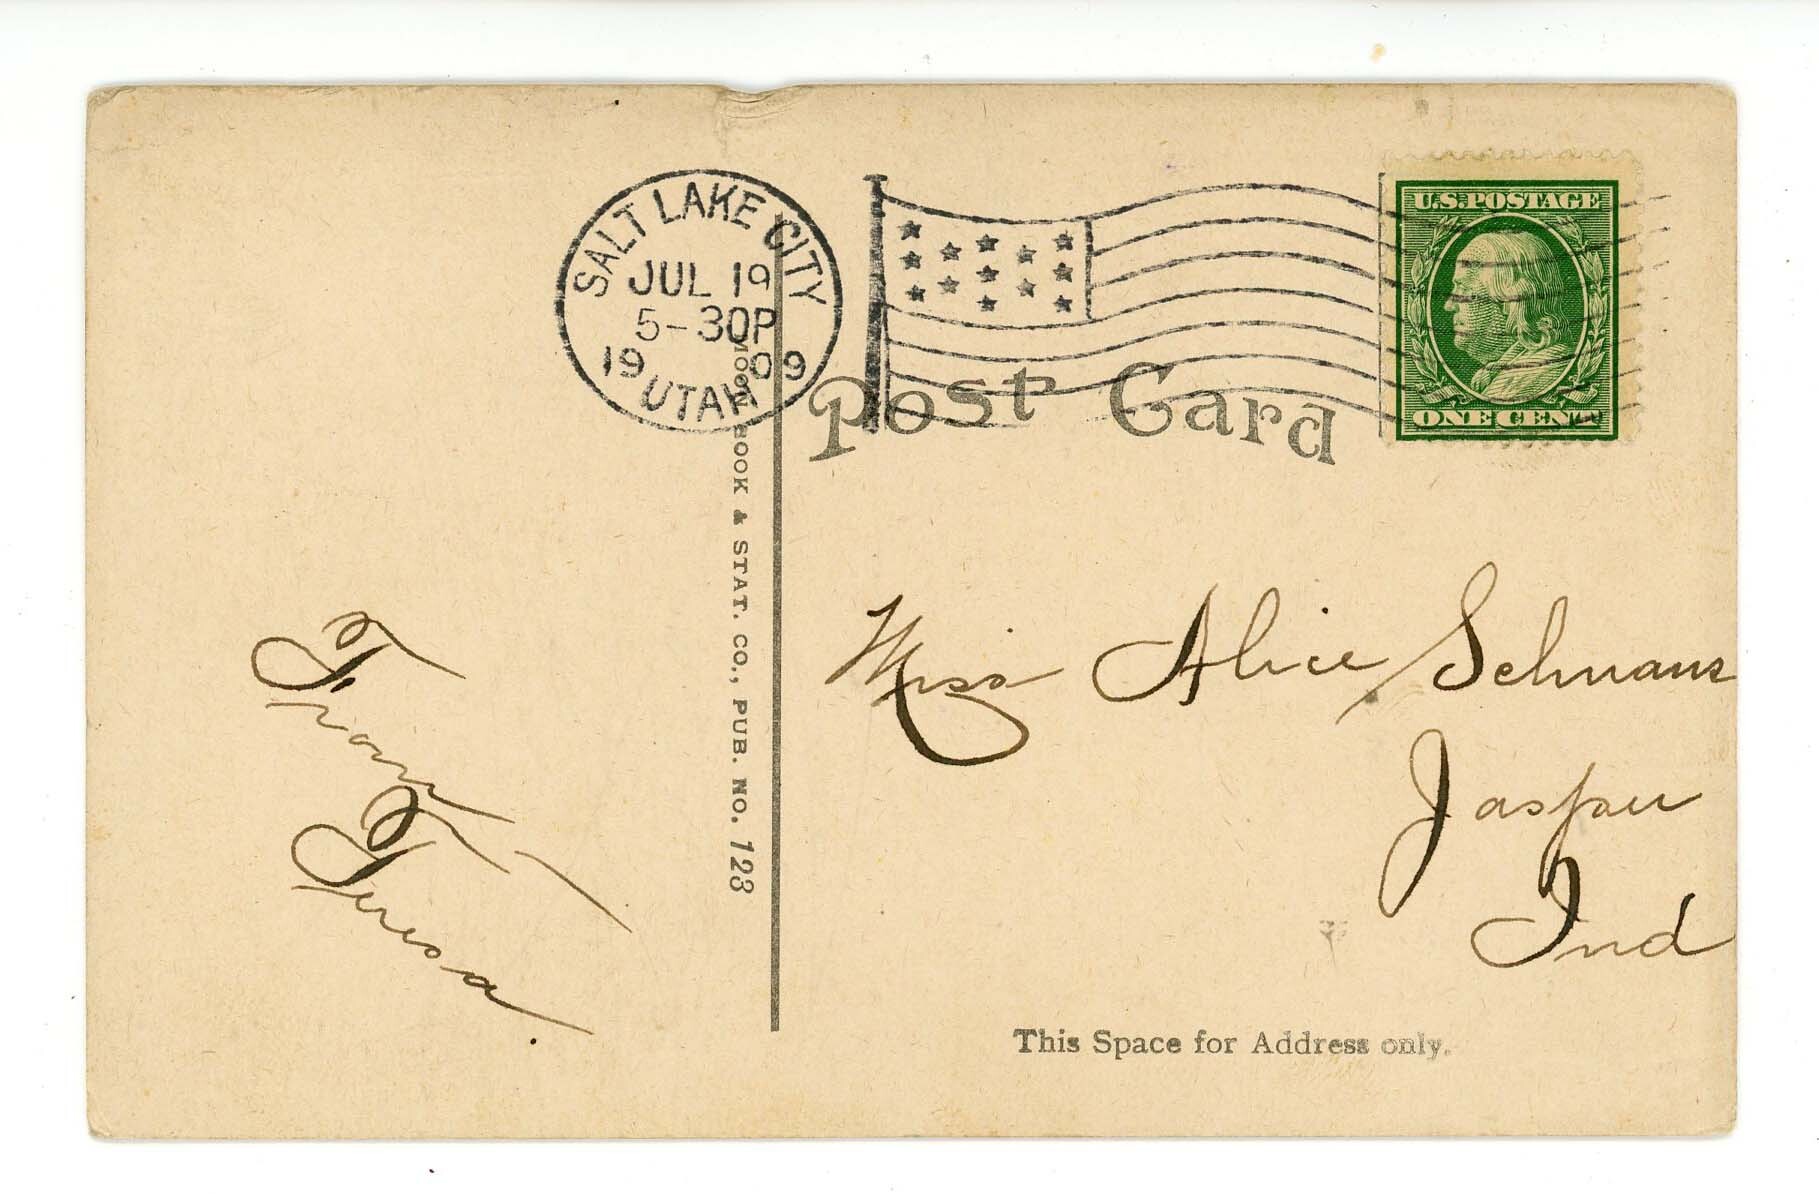 SALT LAKE CITY
JUL 19
5-30P
19 09
UTAH
U.S. POSTAGE
ONE CENT
Post Card
BOOK & STAT. CO., PUB. NO. 123
From
Teresa
Miss Alice
Jasper
Ind
This Space for Address only.